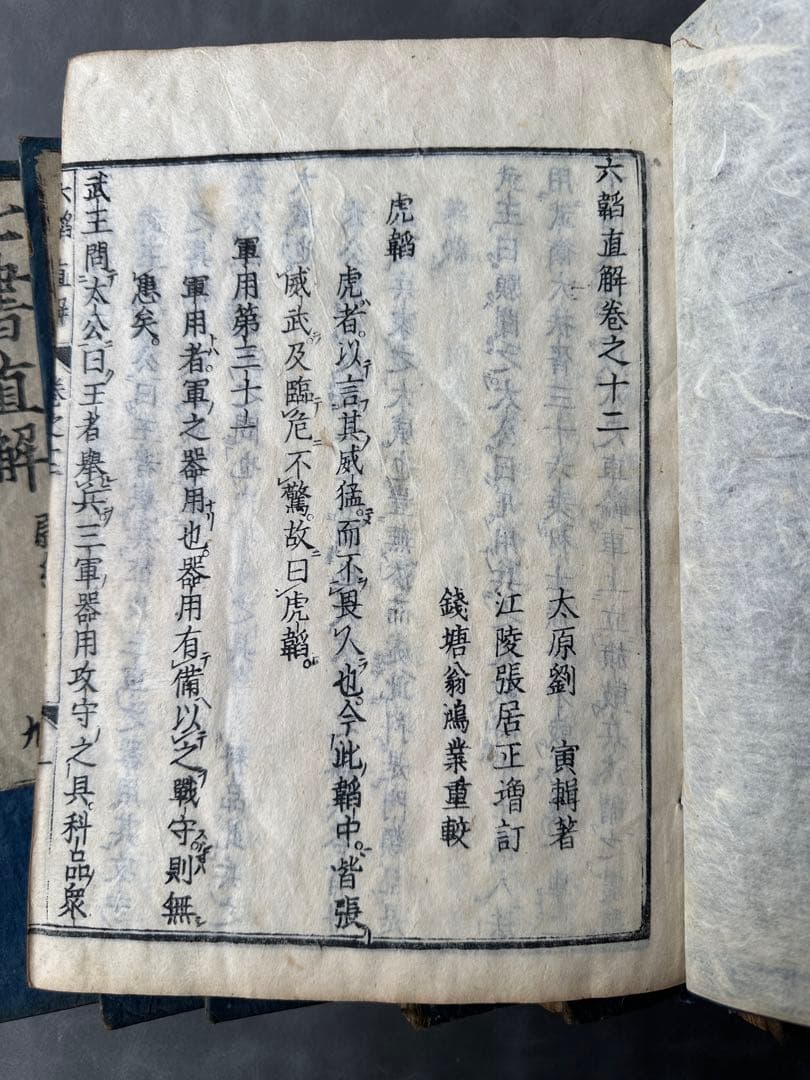 六韜直解卷之十二
太原劉 寅輯著
江陵張居正增訂
錢塘翁鴻業重較
虎韜
虎者。以言其威猛。而不畏人也。今此韜中。皆張
威武及臨危不驚。故曰虎韜。
軍用第三十一
軍用者。軍之器用也。器用有備以之戰守則無
患矣。
武王問太公曰王者舉兵三軍器用攻守之具科品衆
六韜直解 卷之十二
七書直解
九